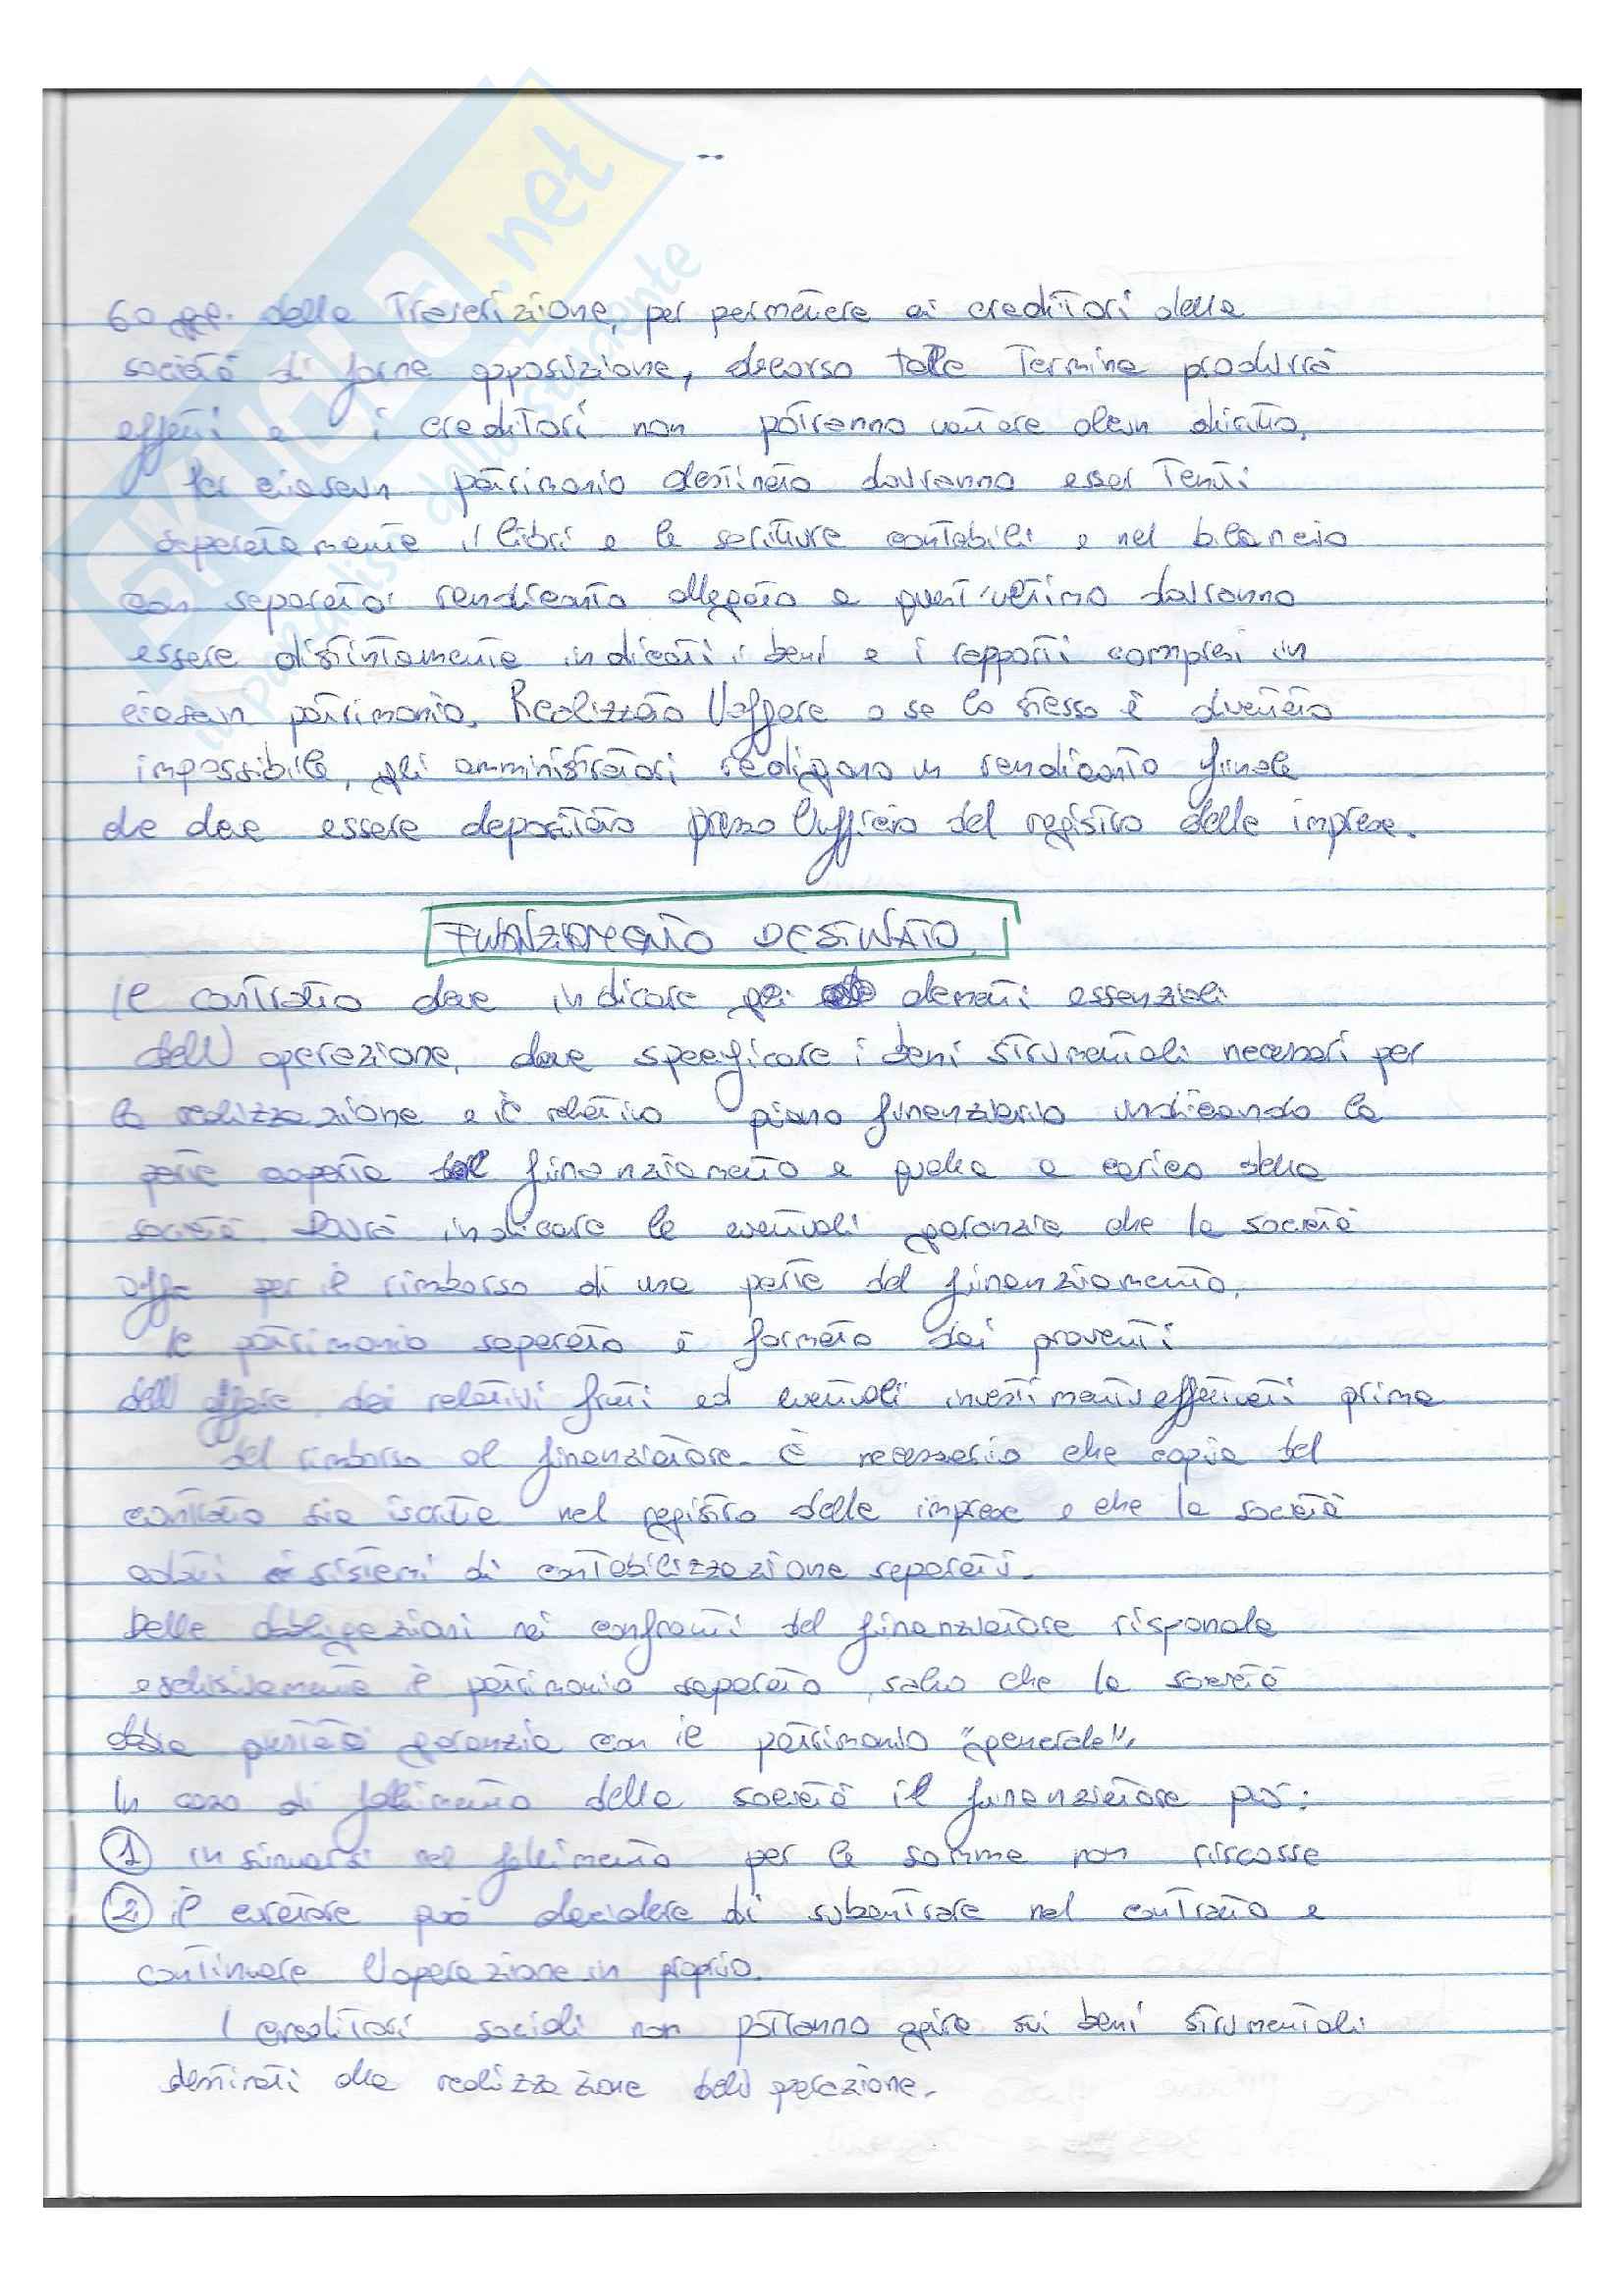 SKUOLA.net
il paradiso dello studente
60 gg. della Trascrizione, per permettere ai creditori della
società di farne opposizione, decorso tale Termine produrrà
effetti e i creditori non potranno vantare alcun diritto.
Per ciascun patrimonio destinato dovranno esser Tenuti
separatamente i libri e le scritture contabili e nel bilancio
con separato rendiconto allegato a quest'ultimo dovranno
essere distintamente indicati i beni e i rapporti compresi in
ciascun patrimonio. Realizzato l'affare o se lo stesso è divenuto
impossibile, gli amministratori redigono un rendiconto finale
che deve essere depositato presso l'ufficio del registro delle imprese.
FINANZIAMENTO DESTINATO
Il contratto deve indicare gli elementi essenziali
dell'operazione, deve specificare i beni strumentali necessari per
la realizzazione e il relativo piano finanziario indicando la
parte coperta dal finanziamento e quella a carico della
società. Dovrà indicare le eventuali garanzie che la società
offre per il rimborso di una parte del finanziamento.
Il patrimonio separato è formato dai proventi
dell'affare, dai relativi frutti ed eventuali investimenti effettuati prima
del rimborso al finanziatore. È necessario che copia del
contratto sia iscritta nel registro delle imprese e che la società
adotti sistemi di contabilizzazione separati.
Delle obbligazioni nei confronti del finanziatore risponde
esclusivamente il patrimonio separato, salvo che la società
abbia prestato garanzia con il patrimonio "generale".
In caso di fallimento della società il finanziatore può:
① insinuarsi nel fallimento per le somme non riscosse
② il curatore può decidere di subentrare nel contratto e
continuare l'operazione in proprio.
I creditori sociali non potranno agire sui beni strumentali
destinati alla realizzazione dell'operazione.